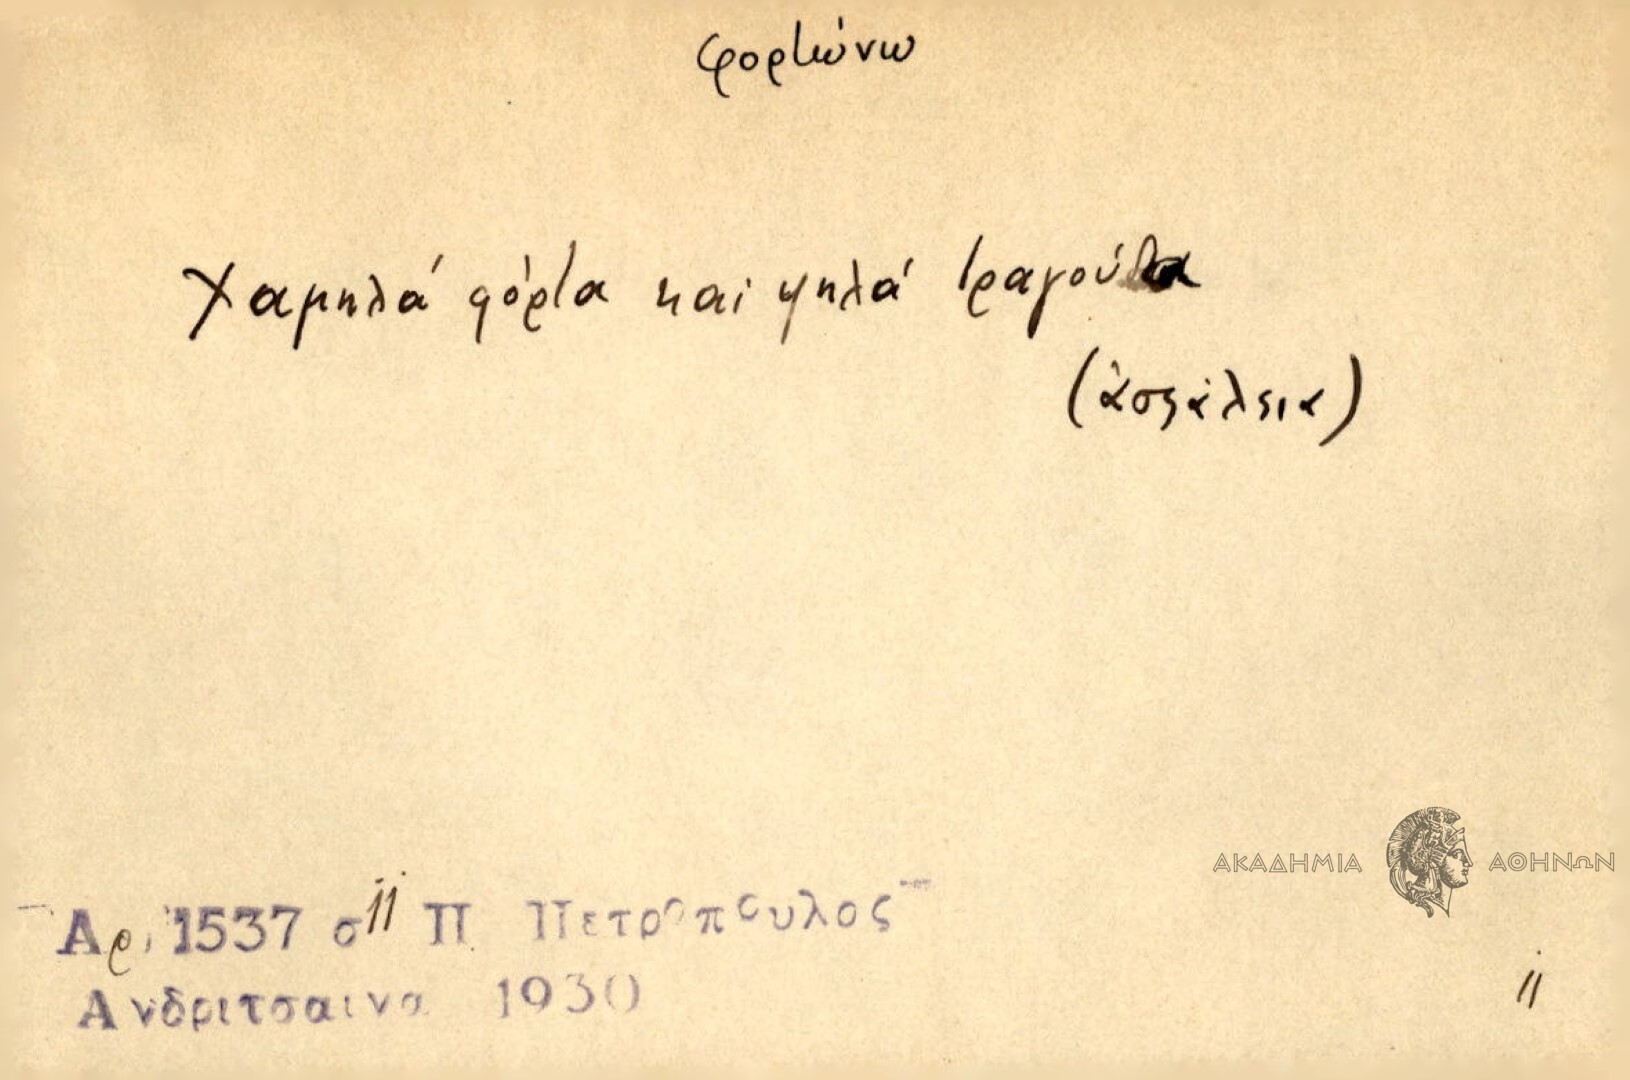 φορτώνω
Χαμηλά φόρτα και ψηλά τραγούδα
(ἀσφάλεια)
ΑΚΑΔΗΜΙΑ ΑΘΗΝΩΝ
Αρ. 1537 σ 11 Π Πετροπουλος
Ανδριτσαινα 1930
11